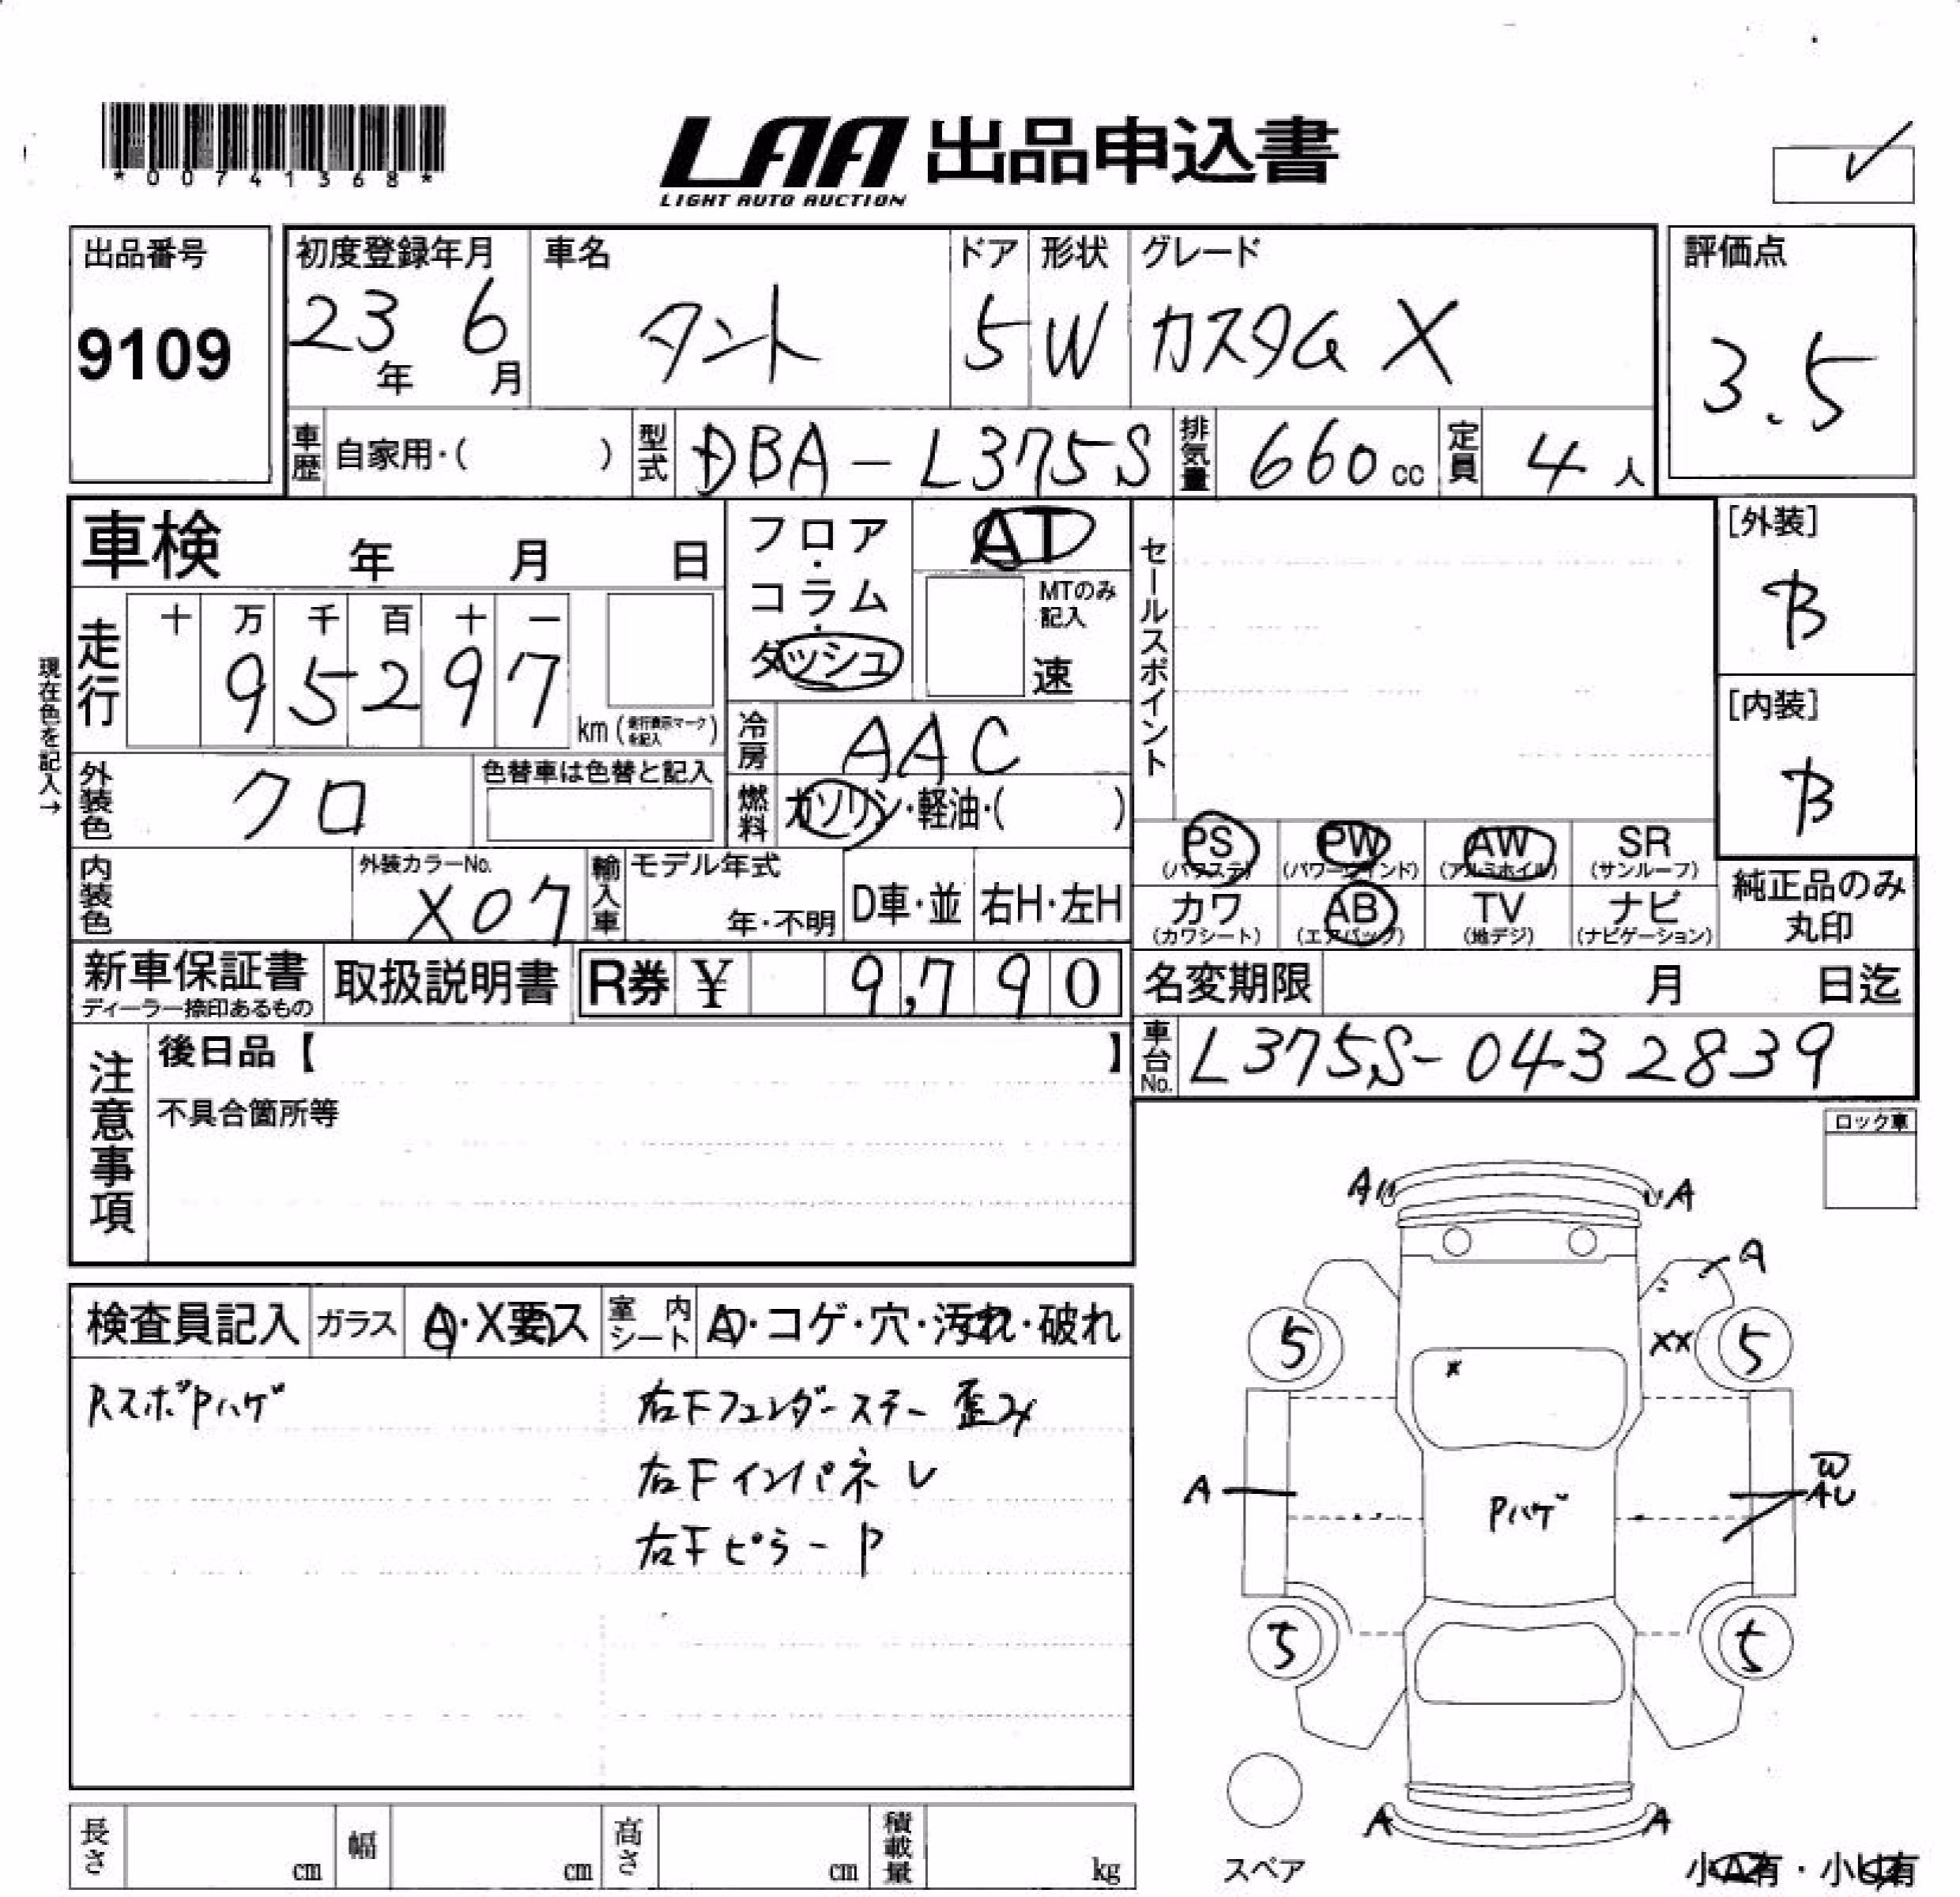 *00741368*
LAA 出品申込書
LIGHT AUTO AUCTION
出品番号
9109
初度登録年月
23年 6月
車名
タント
ドア
5
形状
W
グレード
カスタム X
評価点
3.5
車歴 自家用・( )
型式 DBA-L375S
排気量 660cc
定員 4人
車検 年 月 日
フロア・コラム・ダッシュ
AT
MTのみ記入
速
セールスポイント
[外装]
B
[内装]
B
現在色を記入→
走行 十 万 千 百 十 一
95297
km (走行表示マークを記入)
冷房 AAC
外装色 クロ
色替車は色替と記入
燃料 ガソリン・軽油・( )
PS (パワステ)
PW (パワーウインド)
AW (アルミホイル)
SR (サンルーフ)
カワ (カワシート)
AB (エアバッグ)
TV (地デジ)
ナビ (ナビゲーション)
純正品のみ丸印
内装色
外装カラーNo.
X07
輸入車 モデル年式
年・不明
D車・並
右H・左H
新車保証書
ディーラー捺印あるもの
取扱説明書
R券 ¥ 9,790
名変期限 月 日迄
車台No. L375S-0432839
注意事項
後日品【 】
不具合箇所等
ロック車
検査員記入
ガラス A・X要ス
室内シート A・コゲ・穴・汚れ・破れ
RスポPハゲ
右Fフェンダーステー 歪み
右Fインパネ U
右Fピラー P
A
A
A
XX
5
5
X
A
W
AU
Pハゲ
5
5
A
A
スペア
小A有・小U有
長さ cm
幅 cm
高さ cm
積載量 kg